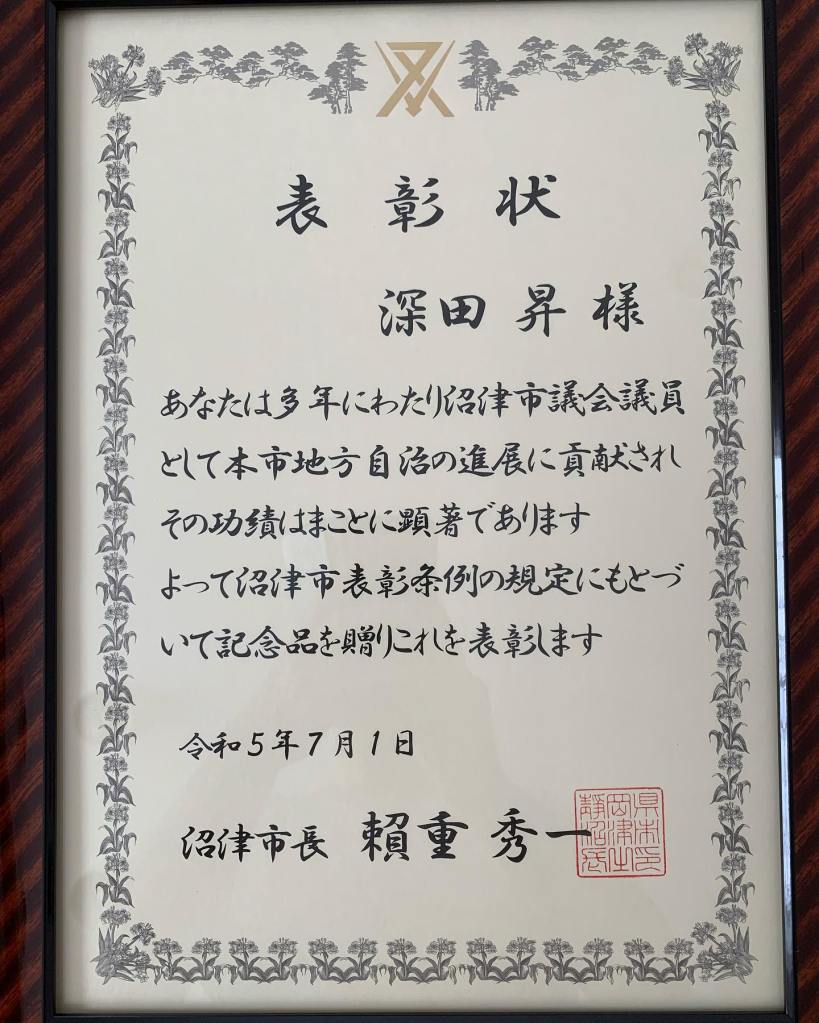 表彰状
深田 昇 様
あなたは多年にわたり沼津市議会議員
として本市地方自治の進展に貢献され
その功績はまことに顕著であります
よって沼津市表彰条例の規定にもとづ
いて記念品を贈りこれを表彰します
令和5年7月1日
沼津市長 賴重 秀一